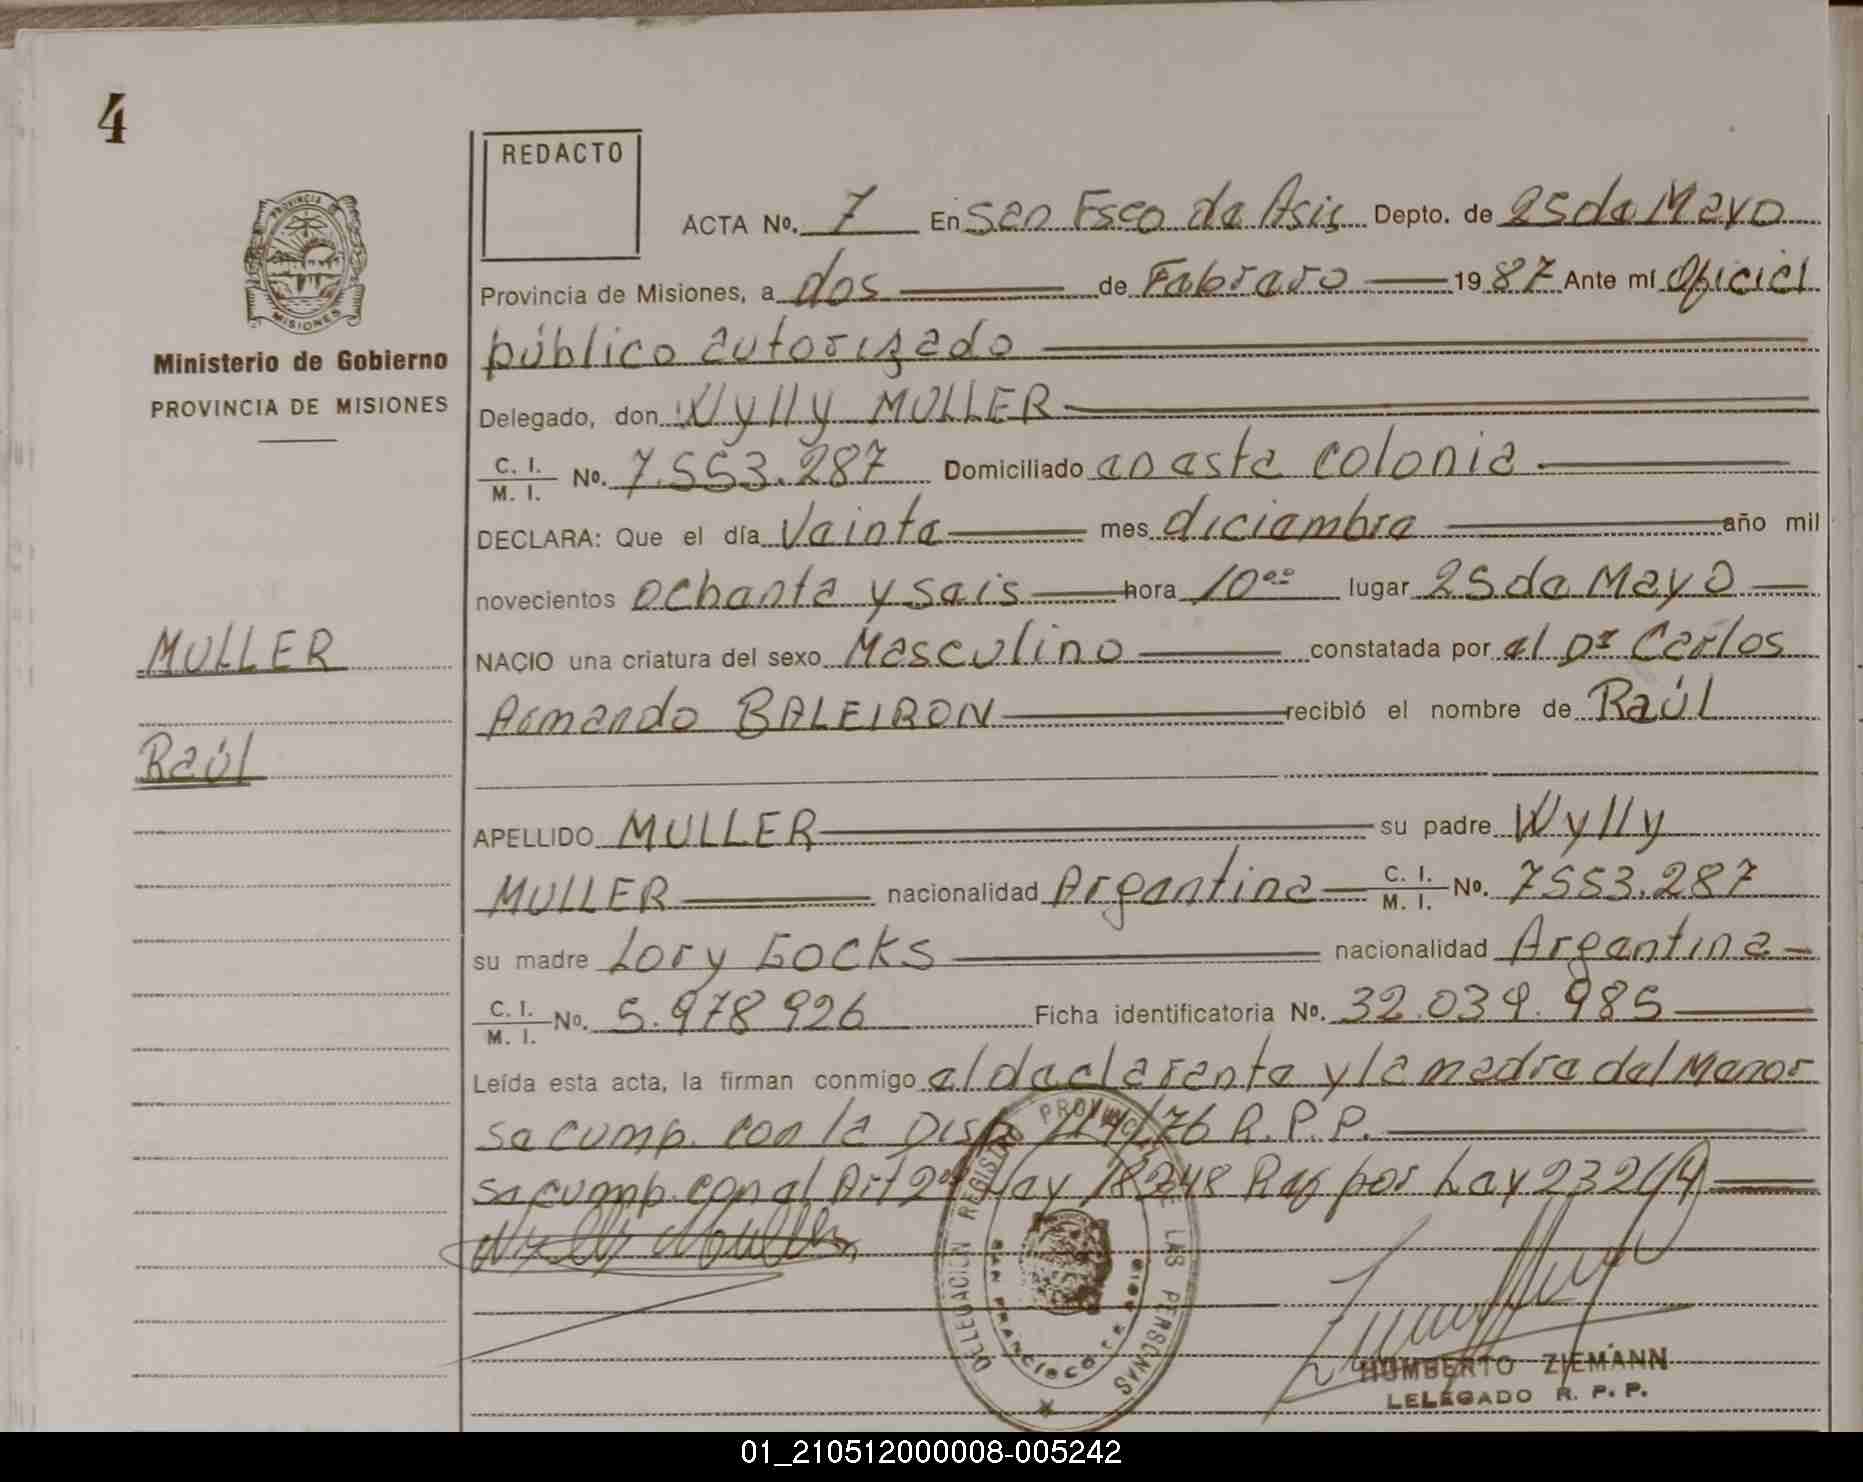 4
REDACTO
ACTA Nº. 7 En San Fsco de Asis Depto. de 25 de Mayo
Provincia de Misiones, a dos de Febrero 1987 Ante mí Oficial
público autorizado
Ministerio de Gobierno
PROVINCIA DE MISIONES
Delegado, don Wylly MULLER
C. I. / M. I. Nº. 7.553.287 Domiciliado en esta colonia
DECLARA: Que el día Veinte mes diciembre año mil
novecientos ochenta y seis hora 10⁰⁰ lugar 25 de Mayo
MULLER
NACIO una criatura del sexo Masculino constatada por el Dr Carlos
Armando BALEIRON recibió el nombre de Raúl
Raúl
APELLIDO MULLER su padre Wylly
MULLER nacionalidad Argentina C. I. / M. I. Nº. 7553.287
su madre Lory GOCKS nacionalidad Argentina
C. I. / M. I. Nº. 5.978 926 Ficha identificatoria Nº. 32.039.985
Leída esta acta, la firman conmigo el declarente y la madre del Menor
se cump. con la Disp. /76 R.P.P.
se cump. con el Art 2º Ley 18248 Ref por Ley 23264
Wylly Muller
DELEGACION REGISTRO PROVINCIAL DE LAS PERSONAS
SAN FRANCISCO DE ASIS
HUMBERTO ZIEMANN
DELEGADO R. P. P.
PROVINCIA DE MISIONES
01_210512000008-005242